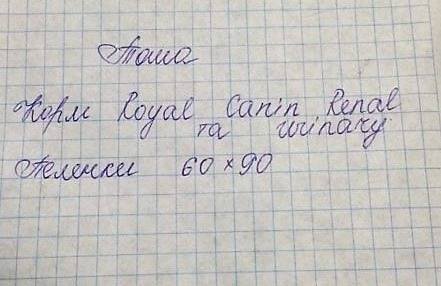 Тоша
Корм Royal Canin Renal
та urinary
Пеленки 60×90